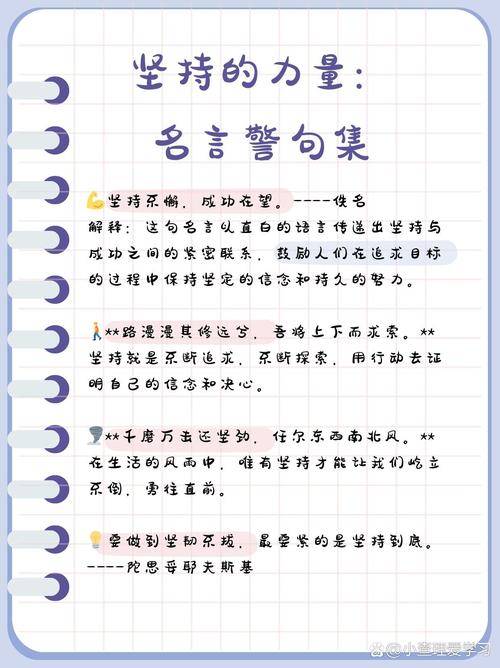 坚持的力量：
名言警句集
💪坚持不懈，成功在望。----佚名
解释：这句名言以直白的语言传递出坚持与
成功之间的紧密联系，鼓励人们在追求目标
的过程中保持坚定的信念和持久的努力。
🚶**路漫漫其修远兮，吾将上下而求索。**
坚持就是不断追求，不断探索，用行动去证
明自己的信念和决心。
🌪**千磨万击还坚劲，任尔东西南北风。**
在生活的风雨中，唯有坚持才能让我们屹立
不倒，勇往直前。
💡要做到坚韧不拔，最要紧的是坚持到底。
----陀思妥耶夫斯基
小查理爱学习